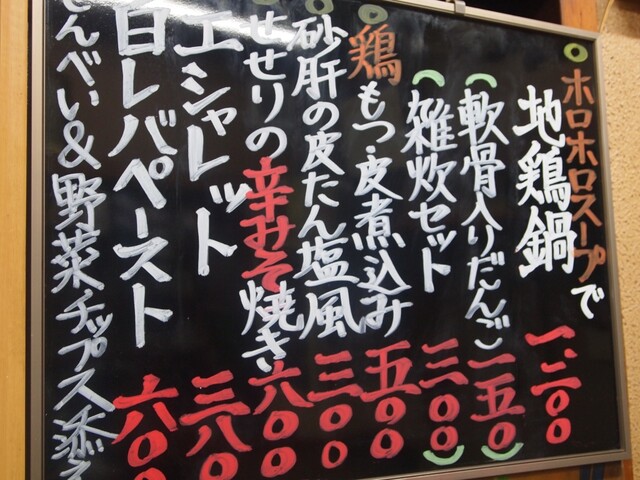 ホロホロスープで
地鶏鍋 一.三〇〇
(軟骨入りだんご 一五〇)
(雑炊セット 三〇〇)
鶏もつ・皮煮込み 五〇〇
砂肝の皮たん塩風 三〇〇
せせりの辛みそ焼き 六〇〇
エシャレット 三八〇
白レバペースト 六〇〇
せんべい&野菜チップス添え